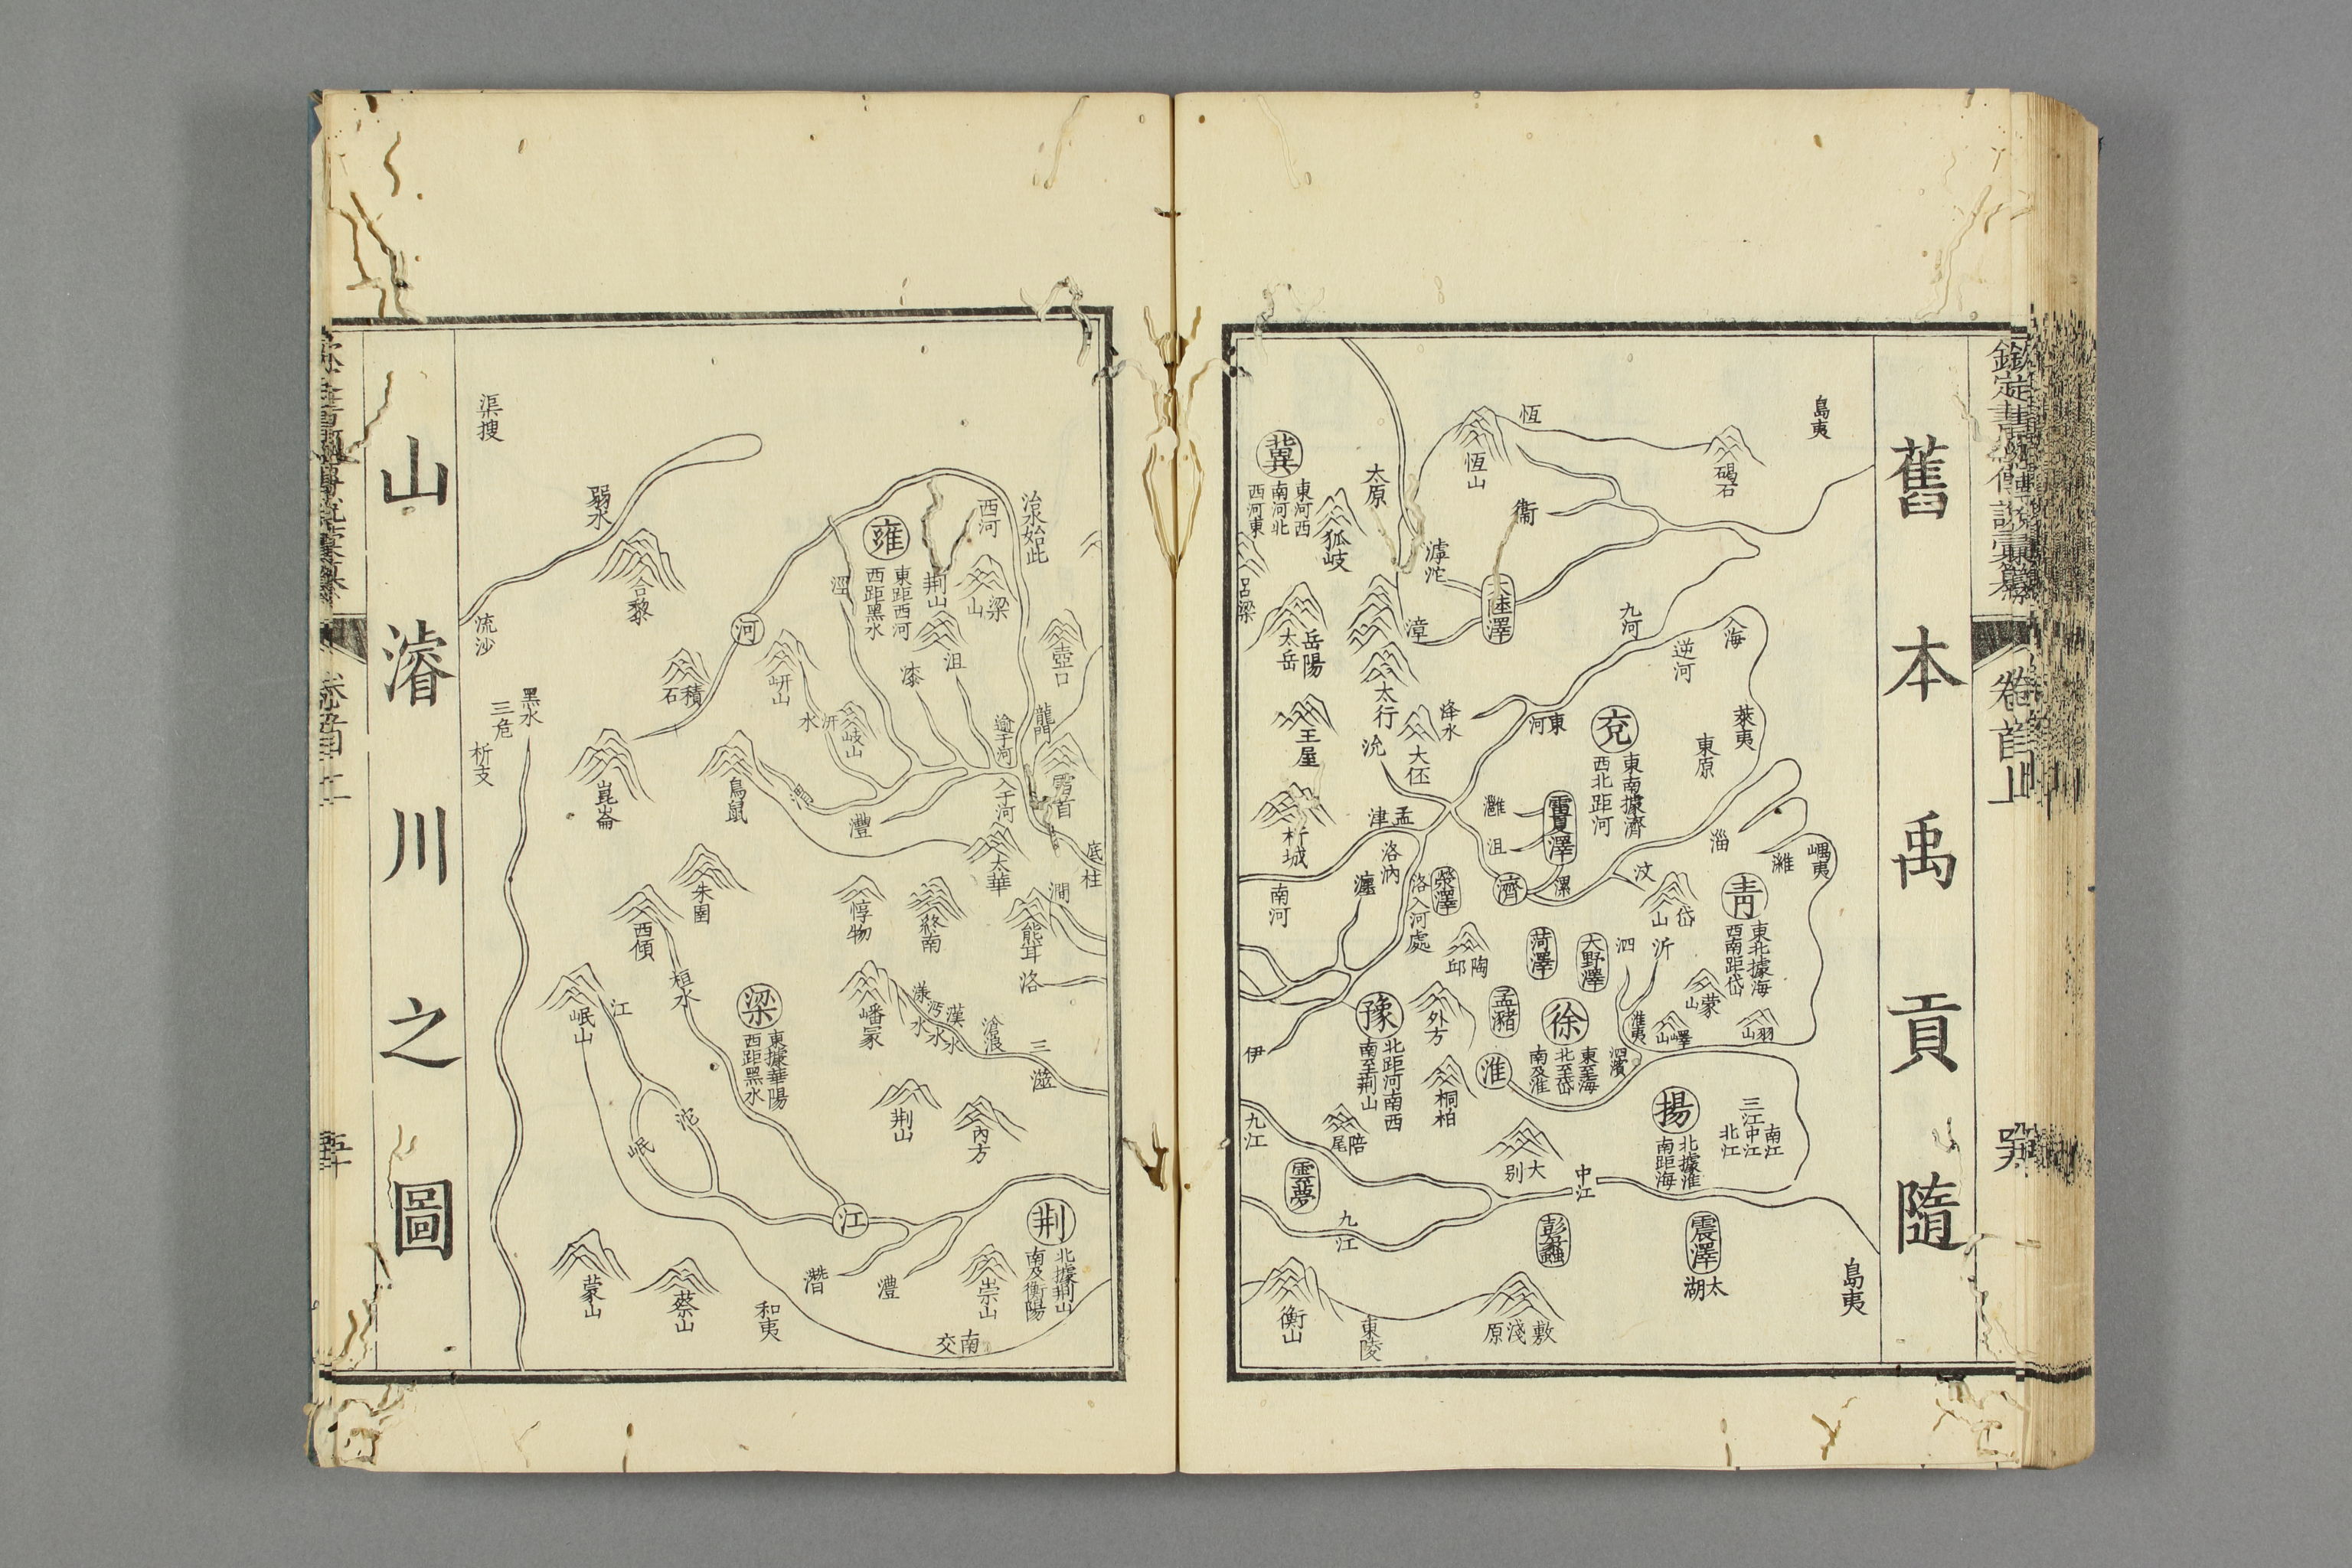 欽定書經傳說彙纂
卷首上
舊本禹貢隨
島夷
碣石
恆
恆山
衞
太原
冀
東河西
南河北
西河東
狐岐
呂梁
滹沱
大陸澤
漳
九河
逆河
入海
岳陽
太岳
太行
王屋
析城
沇
大伾
降水
東河
兗
東南據濟
西北距河
萊夷
東原
孟津
洛汭
瀍
南河
洛入河處
滎澤
灉
沮
雷夏澤
濟
漯
汶
淄
濰
嵎夷
岱山
青
東北據海
西南距岱
陶邱
菏澤
大野澤
泗
沂
蒙山
羽山
嶧山
淮夷
泗濱
孟豬
徐
東至海
北至岱
南及淮
淮
豫
北距河南西
南至荆山
外方
桐柏
伊
陪尾
大别
九江
雲夢
九江
中江
揚
北據淮
南距海
三江
南江
中江
北江
彭蠡
震澤
太湖
島夷
衡山
東陵
敷淺原
山濬川之圖
渠搜
弱水
合黎
流沙
黑水
三危
析支
雍
東距西河
西距黑水
西河
治水始此
梁山
荆山
壺口
龍門
逾于河
入于河
雷首
涇
漆
沮
河
岍山
汧水
岐山
積石
崑崙
鳥鼠
渭
灃
太華
底柱
澗
朱圉
西傾
惇物
終南
熊耳
洛
桓水
嶓冢
漾水
沔水
漢水
滄浪
三澨
岷山
江
梁
東據華陽
西距黑水
沱
岷
荆山
內方
江
荆
北據荆山
南及衡陽
潛
澧
崇山
蒙山
蔡山
和夷
南交